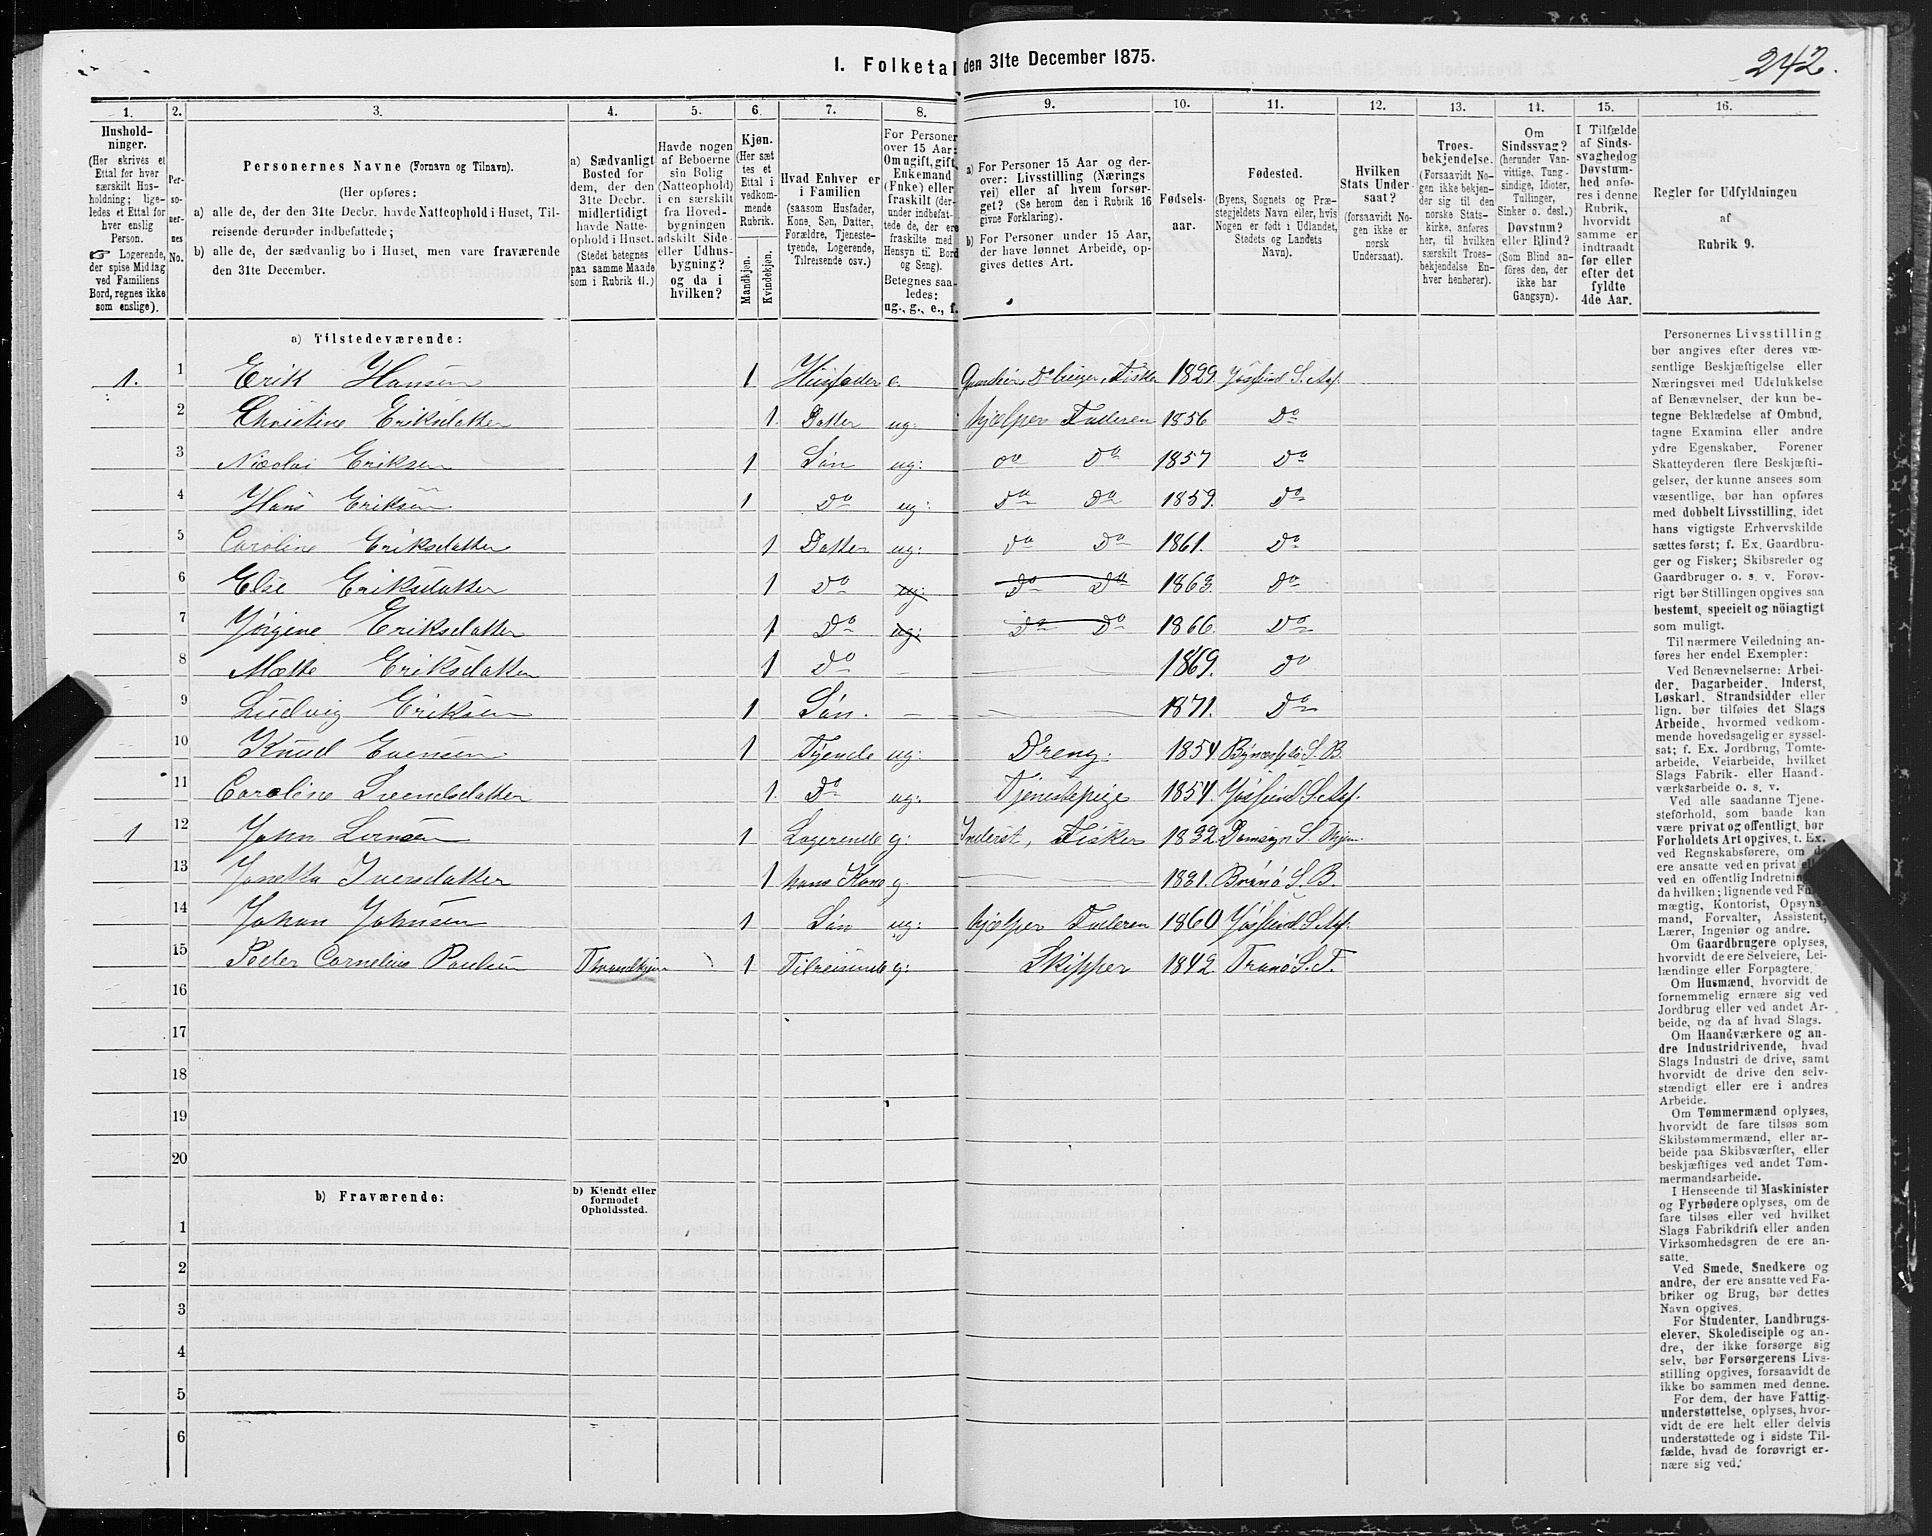 1. Folketal den 31te December 1875.
242.
1. 2. 3. 4. 5. 6. 7. 8. 9. 10. 11. 12. 13. 14. 15. 16.
Hushold-
ninger.
(Her skrives et
Ettal for hver
særskilt Hus-
holdning; lige-
ledes et Ettal for
hver enslig
Person.
☞ Logerende,
der spise Middag
ved Familiens
Bord, regnes ikke
som enslige).
Per-
so-
ner-
nes
No.
Personernes Navne (Fornavn og Tilnavn).
(Her opføres:
a) alle de, der den 31te Decbr. havde Natteophold i Huset, Til-
reisende derunder indbefattede;
b) alle de, der sædvanlig bo i Huset, men vare fraværende
den 31te December.
a) Sædvanligt
Bosted for
dem, der den
31te Decbr.
midlertidigt
havde Natte-
ophold i Huset.
(Stedet betegnes
paa samme Maade
som i Rubrik 11.)
Havde nogen
af Beboerne
sin Bolig
(Natteophold)
i en særskilt
fra Hoved-
bygningen
adskilt Side-
eller Udhus-
bygning?
og da i
hvilken?
Kjøn.
(Her sæt-
tes et
Ettal i
vedkom-
mende
Rubrik.
Mandkjøn.
Kvindekjøn.
Hvad Enhver er
i Familien
(saasom Husfader,
Kone, Søn, Datter,
Forældre, Tjeneste-
tyende, Logerende,
Tilreisende osv.)
For Personer
over 15 Aar:
Om ugift, gift,
Enkemand
(Enke) eller
fraskilt (der-
under indbefat-
tede de, der ere
fraskilte med
Hensyn til Bord
og Seng).
Betegnes saa-
ledes:
ug., g., e., f.
a) For Personer 15 Aar og der-
over: Livsstilling (Nærings
vei) eller af hvem forsør-
get? (Se herom den i Rubrik 16
givne Forklaring).
b) For Personer under 15 Aar,
der have lønnet Arbeide, op-
gives dettes Art.
Fødsels-
aar.
Fødested.
(Byens, Sognets og Præ-
stegjeldets Navn eller, hvis
Nogen er født i Udlandet,
Stedets og Landets
Navn).
Hvilken
Stats Under-
saat?
(forsaavidt No-
gen ikke er
norsk
Undersaat).
Troes-
bekjendelse.
(Forsaavidt No-
gen ikke bekjen-
der sig til den
norske Stats-
kirke, anføres
her, til hvilken
særskilt Troes-
bekjendelse En-
hver henhører).
Om
Sindssvag?
(herunder Van-
vittige, Tung-
sindige, Idioter,
Tullinger,
Sinker o. desl.)
Døvstum?
eller Blind?
(Som Blind an-
føres den, der
ikke har
Gangsyn).
I Tilfælde
af Sinds-
svaghedog
Døvstum-
hed anfø-
res i denne
Rubrik,
hvorvidt
samme er
indtraadt
før eller
efter det
fyldte
4de Aar.
Regler for Udfyldningen
af
Rubrik 9.
a) Tilstedeværende:
1. 1 Erik Hansen 1 Husfader e. 1829.
2 Christine Eriksdatter 1. Datter ug: hjælper Faderen 1856 Do
3 Nicolai Eriksen 1 Søn ug: Do Do 1857 Do
4 Hans Eriksen 1 Do ug: Do Do 1859. Do
5 Caroline Eriksdatter 1 Datter ug: Do Do 1861. Do
6 Else Eriksdatter 1 Do ug: Do Do 1863. Do
7 Jørgine Eriksdatter 1 Do ug: Do Do 1866. Do
8 Mette Eriksdatter 1 Do 1869. Do
9 Ludvig Eriksen 1 Søn. 1871. Do
10 Knud Evensen 1 Tyende ug: Dreng. 1854 S. B.
11 Caroline Svendsdatter 1. Do ug: Tjenestepige 1854.
1 12 John 1 Logerende g: Inderst, Fisker 1832
13 Janetta Iversdatter 1 hans Kone g. 1831. Brønø S. B.
14 Johan Johnsen 1 Søn ug: hjælper Faderen 1860
15 Peder Cornelius Paulsen 1 Tilreisende g: Skipper 1842. Tranø S. T.
16
17
18
19
20
b) Fraværende:
b) Kjendt eller
formodet
Opholdssted.
1
2
3
4
5
6
Personernes Livsstilling
bør angives efter deres væ-
sentlige Beskjæftigelse eller
Næringsvei med Udelukkelse
af Benævnelser, der kun be-
tegne Beklædelse af Ombud,
tagne Examina eller andre
ydre Egenskaber. Forener
Skatteyderen flere Beskjæfti-
gelser, der kunne ansees som
væsentlige, bør han opføres
med dobbelt Livsstilling, idet
hans vigtigste Erhvervskilde
sættes først; f. Ex. Gaardbru-
ger og Fisker; Skibsreder og
Gaardbruger o. s. v. Forøv-
rigt bør Stillingen opgives saa
bestemt, specielt og nöiagtigt
som muligt.
Til nærmere Veiledning an-
føres her endel Exempler:
Ved Benævnelserne: Arbei-
der, Dagarbeider, Inderst,
Løskarl, Strandsidder eller
lign. bør tilføies det Slags
Arbeide, hvormed vedkom-
mende hovedsagelig er syssel-
sat; f. Ex. Jordbrug, Tomte-
arbeide, Veiarbeide, hvilket
Slags Fabrik- eller Haand-
værksarbeide o. s. v.
Ved alle saadanne Tjene-
steforhold, som baade kan
være privat og offentligt, bør
Forholdets Art opgives, t. Ex.
ved Regnskabsførere, om de
ere ansatte ved en privat eller
ved en offentlig Indretning, og
da hvilken; lignende ved Fuld-
mægtig, Kontorist, Opsyns-
mand, Forvalter, Assistent,
Lærer, Ingeniør og andre.
Om Gaardbrugere oplyses,
hvorvidt de ere Selveiere, Lei-
lændinge eller Forpagtere.
Om Husmænd, hvorvidt de
fornemmelig ernære sig ved
Jordbrug eller ved andet Ar-
beide, og da af hvad Slags.
Om Haandværkere og an-
dre Industridrivende, hvad
Slags Industri de drive, samt
hvorvidt de drive den selv-
stændigt eller ere i andres
Arbeide.
Om Tømmermænd oplyses,
hvorvidt de fare tilsøs som
Skibstømmermænd, eller ar-
beide paa Skibsværfter, eller
beskjæftiges ved andet Tøm-
mermandsarbeide.
I Henseende til Maskinister
og Fyrbødere oplyses, om de
fare tilsøs eller ved hvilket
Slags Fabrikdrift eller anden
Virksomhedsgren de ere an-
satte.
Ved Smede, Snedkere og
andre, der ere ansatte ved Fa-
briker og Brug, bør dettes
Navn opgives.
For Studenter, Landbrugs-
elever, Skoledisciple og an-
dre, der ikke forsørge sig
selv, bør Forsørgerens Livs-
stilling opgives, forsaavidt de
ikke bo sammen med denne.
For dem, der have Fattig-
understøttelse, oplyses, hvor-
vidt de ere helt eller delvis
understøttede og i sidste Til-
fælde, hvad de forøvrigt er-
nære sig ved.